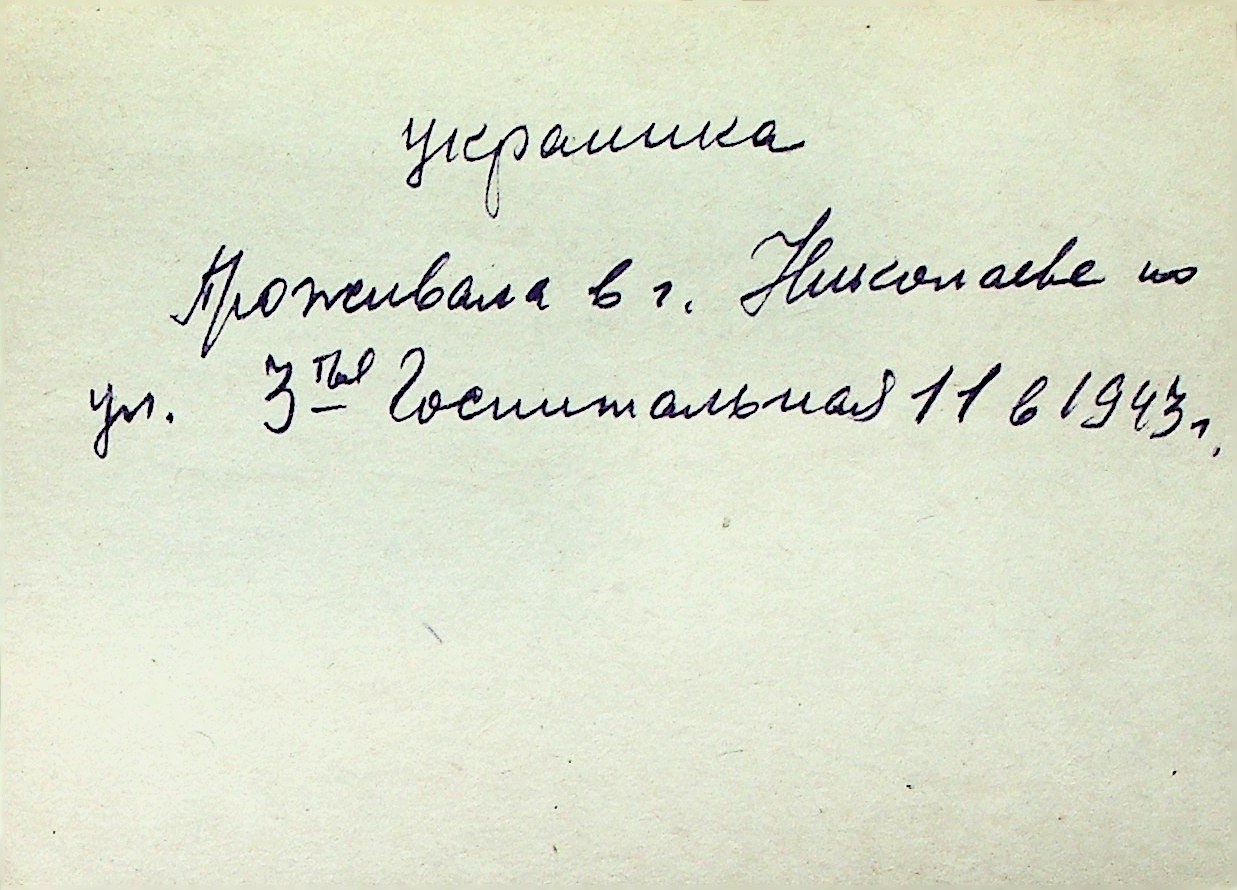 украинка
Проживала в г. Николаеве по
ул. 3тья Госпитальная 11 в 1943 г.